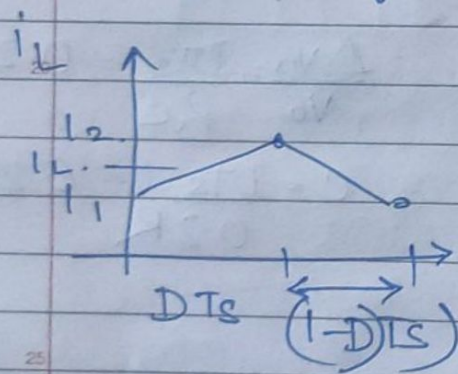 iL
I2
IL
I1
DTs (1-D)Ts
25